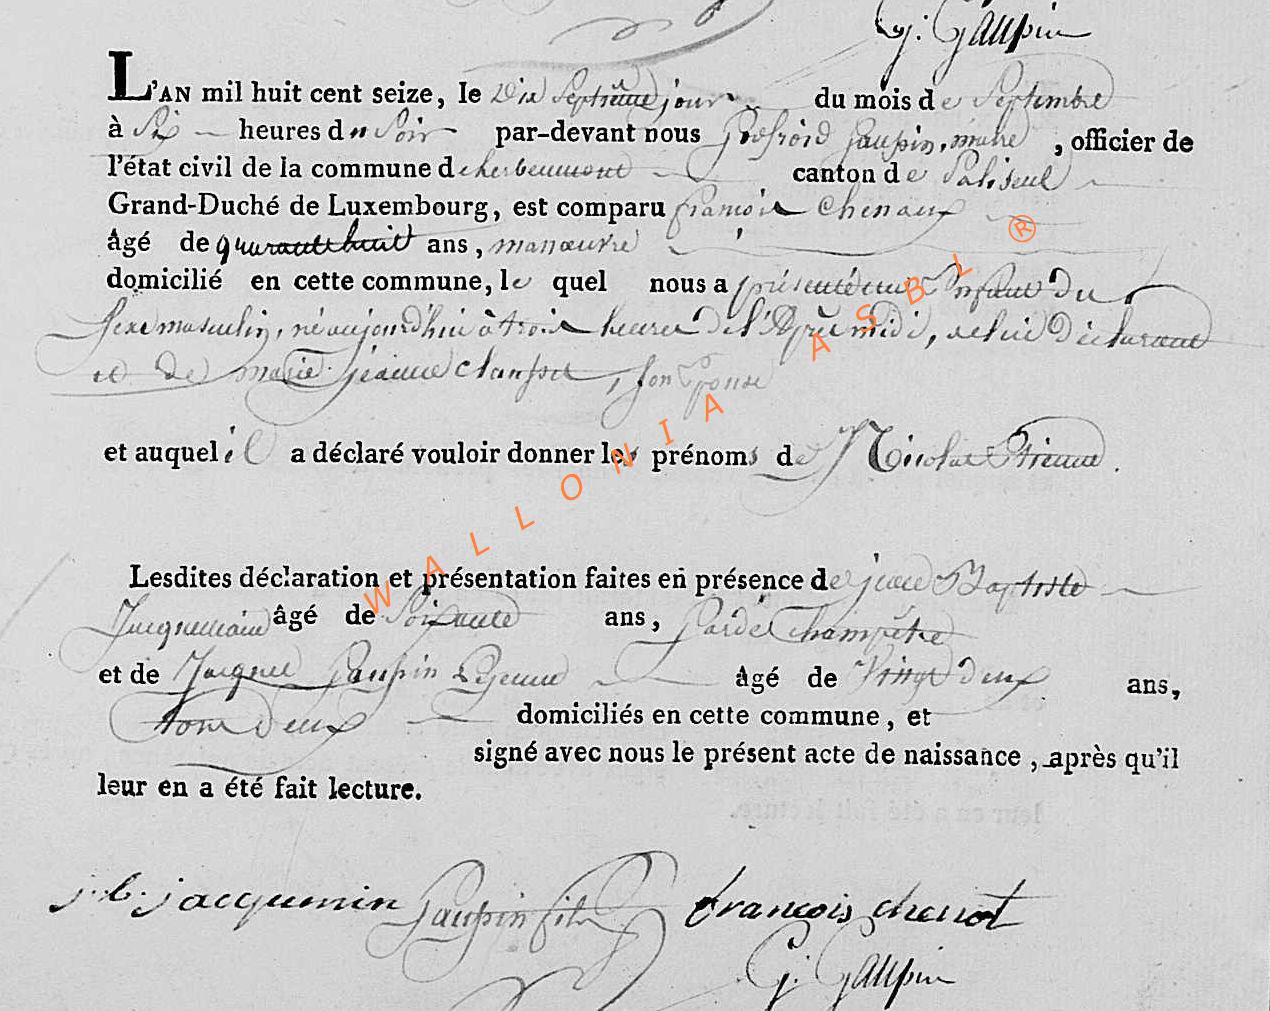 G. Gaupin
L'AN mil huit cent seize, le Dix Septième jour du mois de Septembre
à Six heures du Soir par-devant nous Godfroid Gaupin, maire, officier de
l'état civil de la commune de herbeumont canton de Paliseul
Grand-Duché de Luxembourg, est comparu françois Chenaux
âgé de quarante huit ans, manœuvre
domicilié en cette commune, le quel nous a présenté un Enfant du
Sexe masculin, né aujourd'hui à trois heures de l'Après midi, de lui Déclarant
et de marie jeanne, son Epouse
et auquel il a déclaré vouloir donner les prénoms de Nicolas Etienne.
Lesdites déclaration et présentation faites en présence de jean Baptiste
Jacquemin âgé de Soixante ans, Garde Champêtre
et de Jacques Gaupin Lejeune âgé de Vingt deux ans,
tous deux domiciliés en cette commune, et
signé avec nous le présent acte de naissance, après qu'il
leur en a été fait lecture.
j. b. jacquemin Gaupin fils francois chenot
G. Gaupin
WALLONIA ASBL ®